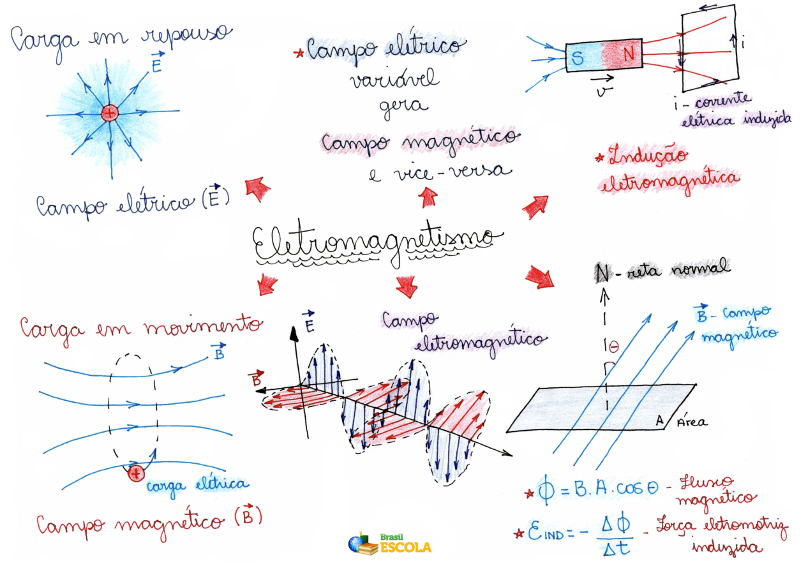 Carga em repouso
E
+
Campo elétrico (E)
* Campo elétrico
variável
gera
Campo magnético
e vice-versa
S N
v
i
i - corrente
elétrica induzida
* Indução
eletromagnética
Eletromagnetismo
Carga em movimento
B
+
carga elétrica
Campo magnético (B)
E
B
Campo
eletromagnético
N - reta normal
B - campo
magnético
θ
A Área
* ϕ = B.A.cosθ - Fluxo
magnético
* εIND = - Δϕ/Δt - Força eletromotriz
induzida
Brasil
ESCOLA